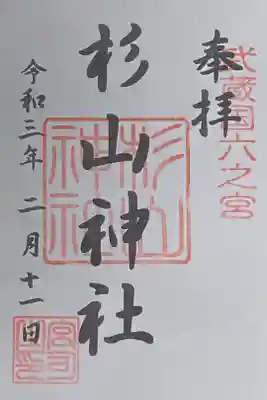 奉拝
武蔵国六之宮
杉山神社
杉山神社
令和三年 二月十一日